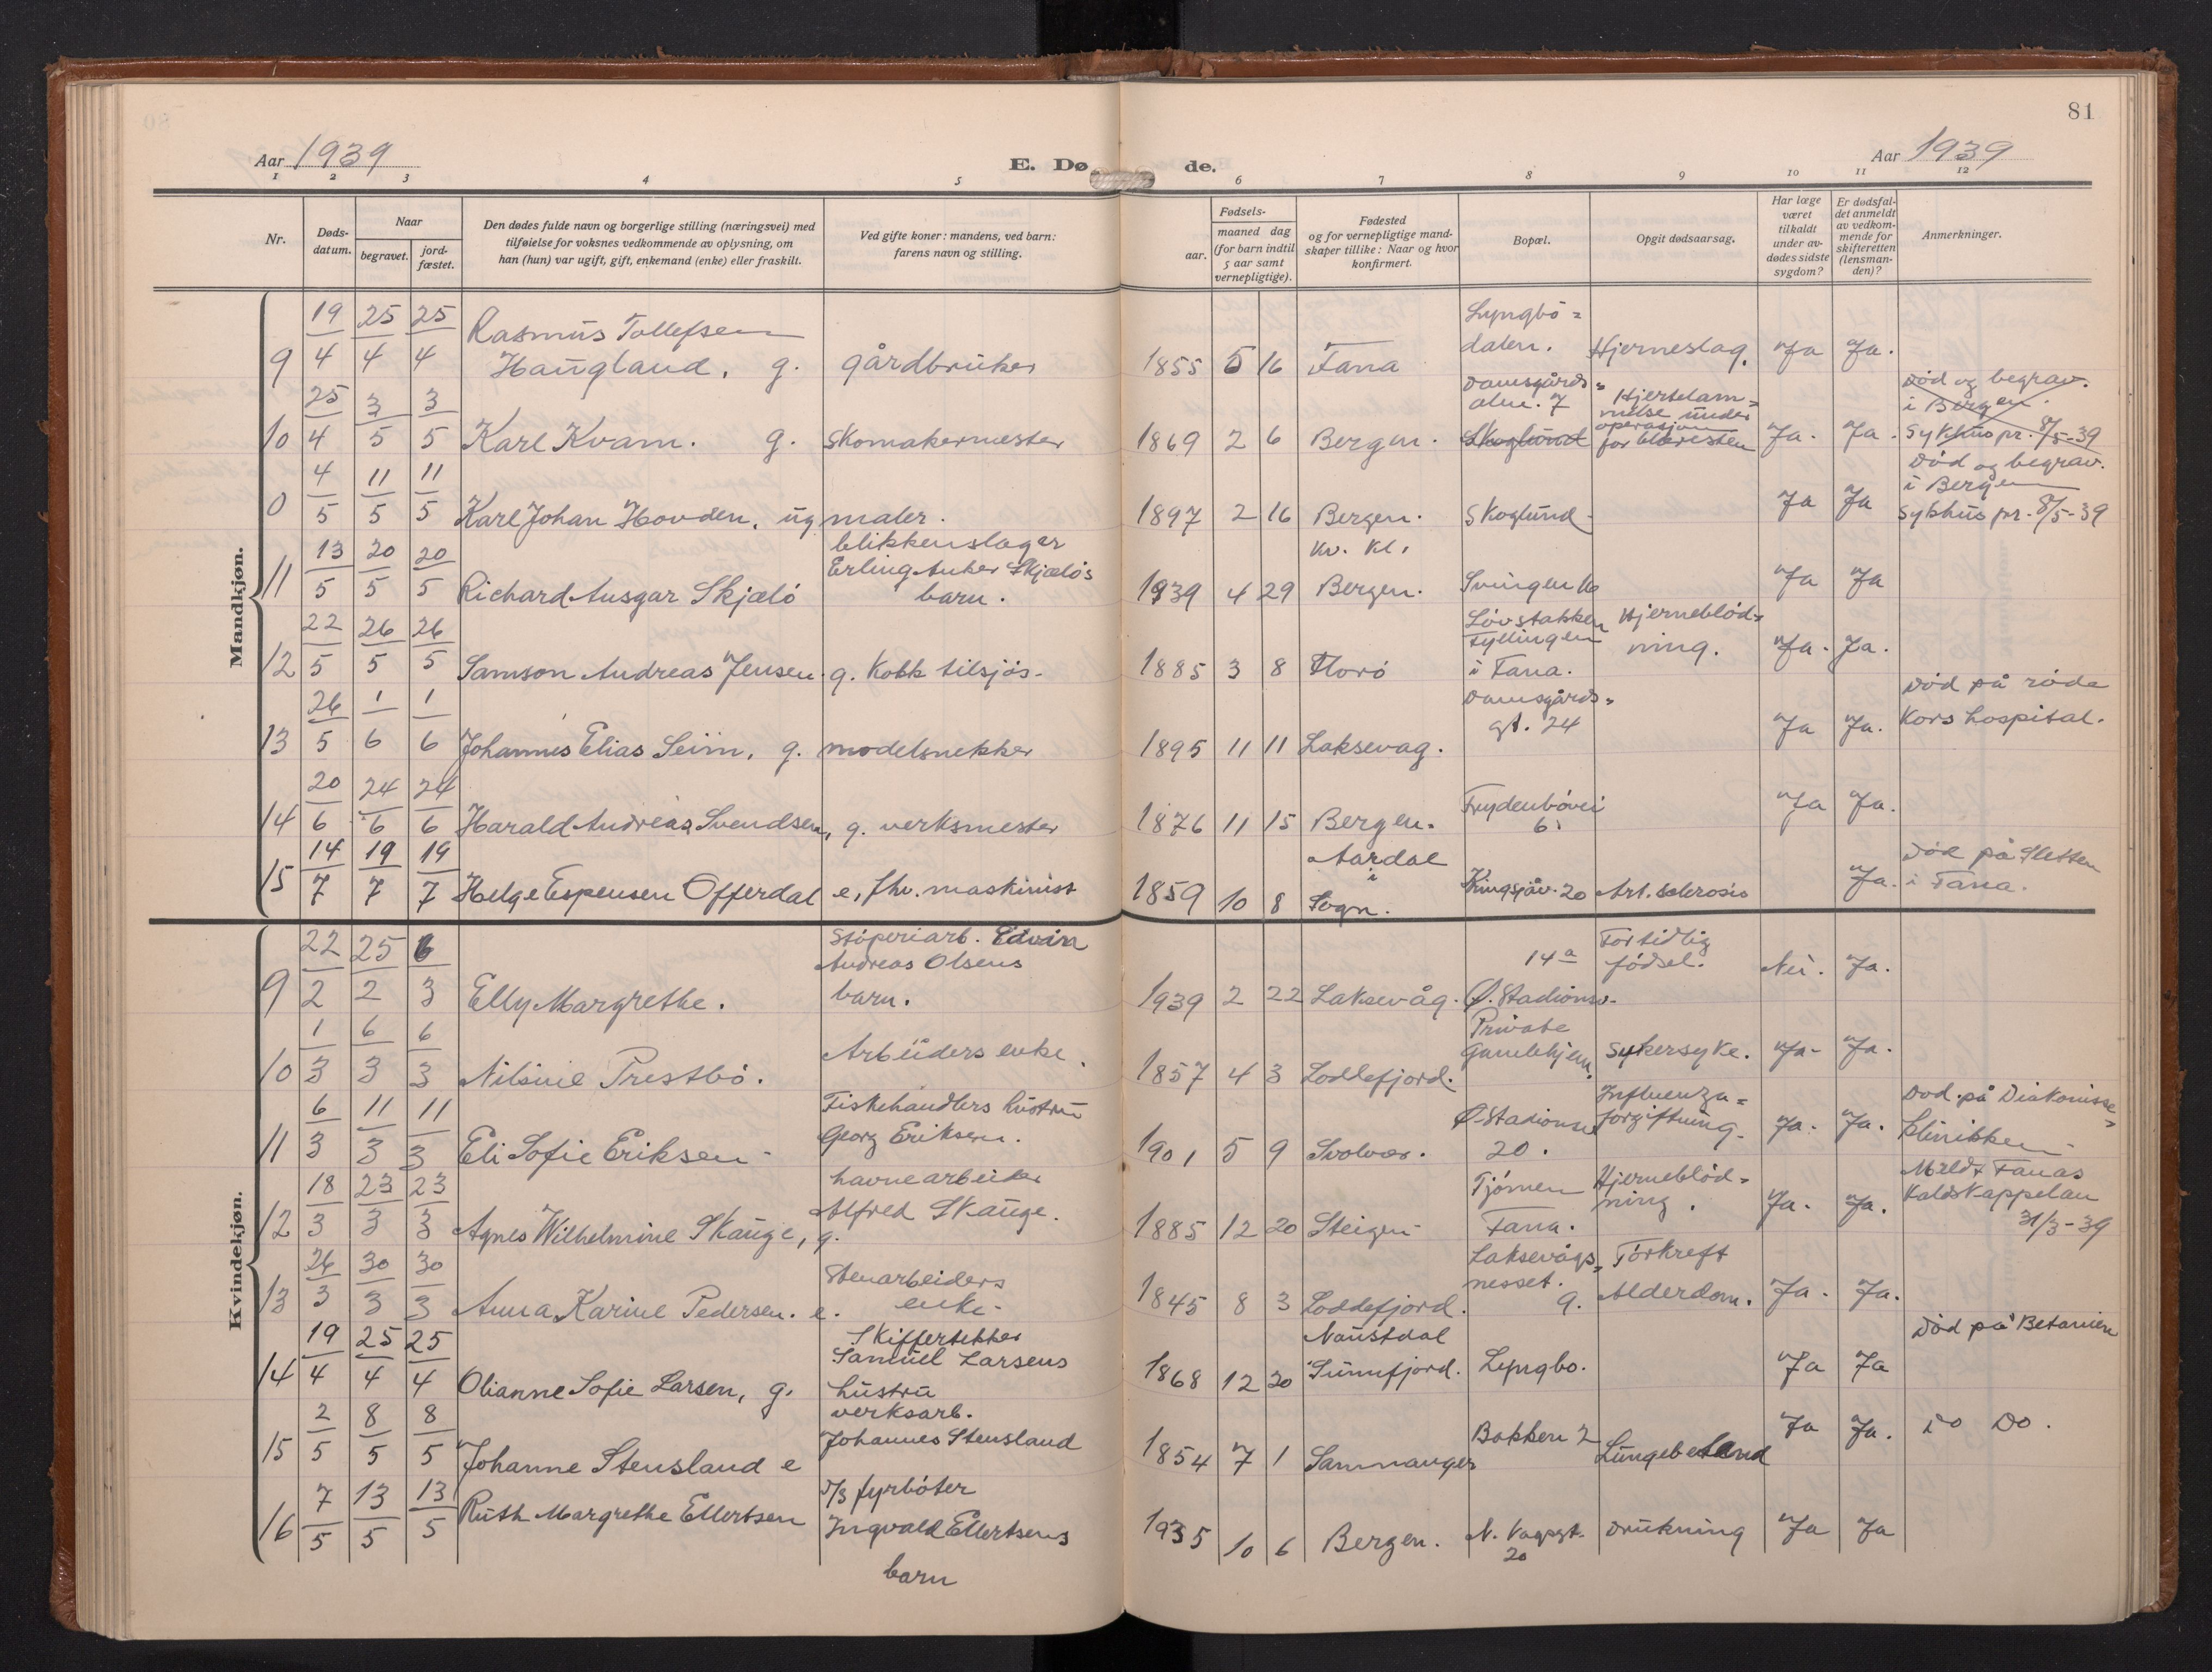 80
81
Aar 1939
E. Døde.
Aar 1939
1 2 3 4 5 6 7 8 9 10 11 12
Nr.
Døds-datum.
Naar
begravet.
jord-fæstet.
Den dødes fulde navn og borgerlige stilling (næringsvei) med
tilføielse for voksnes vedkommende av oplysning, om
han (hun) var ugift, gift, enkemand (enke) eller fraskilt.
Ved gifte koner: mandens, ved barn:
farens navn og stilling.
Fødsels-
aar.
maaned dag
(for barn indtil
5 aar samt
vernepligtige).
Fødested
og for vernepligtige mand-
skaper tillike: Naar og hvor
konfirmert.
Bopæl.
Opgit dødsaarsag.
Har læge
været
tilkaldt
under av-
dødes sidste
sygdom?
Er dødsfal-
det anmeldt
av vedkom-
mende for
skifteretten
(lensman-
den)?
Anmerkninger.
Mandkjøn.
9 19/4 25/4 25/4 Rasmus Tollefsen
Haugland, g. gårdbruker 1855 5 16 Fana Lyngbö=
dalen. Hjerneslag. Ja Ja.
10 25/4 3/5 3/5 Karl Kvam. g. Skomakermester 1869 2 6 Bergen. Damsgårds=
alm. 7
Skoglund
Hjertelam=
melse under
operasjon
for blæresten Ja. Ja.
Död og begrav.
i Bergen.
Sykhus pr. 8/5-39
0 4/5 11/5 11/5 Karl Johan Hovden, ug maler. 1897 2 16 Bergen. Skoglund. Ja Ja
Död og begrav.
i Bergen
Sykhus pr. 8/5-39
11 13/5 20/5 20/5 Richard Ansgar Skjælö
blikkenslager
Erling Anker Skjælös
barn. 1939 4 29 Kv. Kl.
Bergen. Svingen 16 Ja Ja
12 22/5 26/5 26/5 Samson Andreas Jensen. g. Kokk tilsjös. 1885 3 8 Florö
Lövstakken
Fyllingen
i Fana.
Hjerneblöd=
ning. Ja. Ja.
13 26/5 1/6 1/6 Johannes Elias Seim, g. modelsnekker 1895 11 11 Laksevag.
Damsgårds=
gt. 24 Ja Ja.
Död på röde
Kors hospital.
14 20/6 24/6 24/6 Harald Andreas Svendsen, g. verksmester 1876 11 15 Bergen. Frydenbövei
6. Ja Ja.
15 14/7 19/7 19/7 Helge Espensen Offerdal e, fhv. maskinist 1859 10 8 Aardal
i
Sogn. Kringsjåv. 20 Art. sclerosis Ja.
Död på Sletten
i Fana.
Kvindekjøn.
9 22/2 25/2 6/3 Elly Margrethe.
Stöperiarb. Edvin
Andreas Olsens
barn. 1939 2 22 Laksevåg. 14a
Ø. Stadionv.
For tidlig
födsel. Nei. Ja.
10 1/3 6/3 6/3 Nilsine Prestbö. Arbeiders enke. 1857 4 3 Loddefjord.
Private
Gamlehjem. Sykersyke. Ja. Ja.
11 6/3 11/3 11/3 Eli Sofie Eriksen.
Fiskehandlers hustru
Georg Eriksen. 1901 5 9 Svolvær. Ø. Stadionv
20.
Influenza=
forgiftning. Ja. Ja.
Död. på Diakonisse=
klinikken.
12 18/3 23/3 23/3 Agnes Wilhelmine Skauge, g.
havnearbeider
Alfred Skauge. 1885 12 20 Steigen
Tjörnen
Fana.
Hjerneblöd=
ning. Ja. Ja.
Meldt Fanas
Kaldskappelan
31/3-39
13 26/3 30/3 30/3 Anna Karine Pedersen. e.
Stenarbeiders
enke. 1845 8 3 Loddefjord.
Laksevågs=
nesset. 9.
Törkreft
Alderdom. Ja. Ja.
14 19/4 25/4 25/4 Olianne Sofie Larsen, g.
Skiffertekker
Samuel Larsens
hustru 1868 12 20 Naustdal
Sunnfjord. Lyngbo. Ja Ja Död på Betanien
15 2/5 8/5 8/5 Johanne Stensland e
verksarb.
Johannes Stensland 1854 7 1 Samnanger Bakken 2 Lungebetend Ja Ja. Do Do.
16 7/5 13/5 13/5 Ruth Margrethe Ellertsen
D/S fyrböter
Ingvald Ellertsens
barn 1935 10 6 Bergen. N. Vagsgt.
20 Drukning Ja Ja